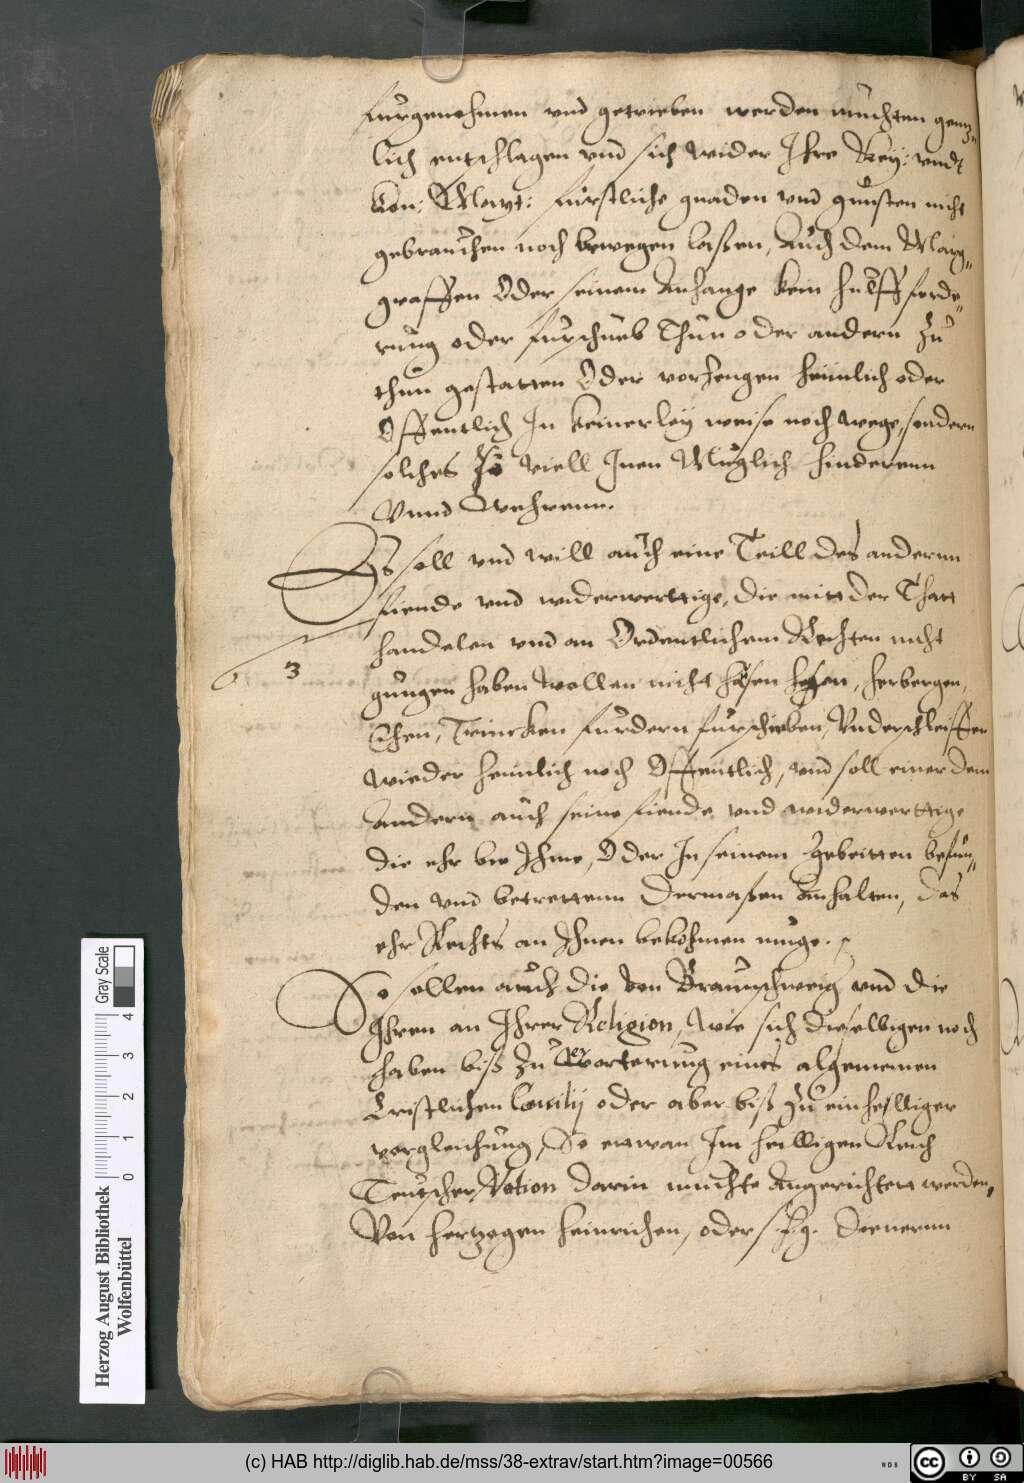 furgenohmen vnd getrieben werden muchten gentz-
lich entschlagen vnd sich wider Ihre Key: vndt
Kon: Mayt: furstliche gnaden vnd gunsten nicht
gebrauchen noch bewegen laßen, Auch dem Marg-
graffen Oder seinem Anhange kein hulff forde-
rung oder furschueb Thun oder andern zu
thun gestatten Oder vorhengen heimlich oder
Offentlich In keinerley weise noch wege, sondern
solches so viell Inen Muglich hinderenn
Vnnd Wehrenn.
Es soll vnd will auch eine Teill des andernn
fiende vnd widerwerttige, die mitt der Thatt
handelen vnd an Ordentlichem Rechten nicht
3
gungen haben wollen nicht hausen, herbergen,
Ehen, Trincken furdern furschieben, Vnderschleiffen
wieder heimlich noch Offentlich, vnd soll einer dem
Andern auch seine fiende vnd widerwerttige
die ehr bie Ihme, Oder In seinem gebeitten befun-
den vnd betrettenn Dermaßen Anhalten, das
ehr Rechts an Ihnen bekohmen muge.
So sollen auch die von Braunschweig vnd die
Ihren an Ihrer Religion, wie sich dieselbigen noch
haben biß zu Erorterung eines algemeinen
Cristlichen Concilij oder aber biß zu einhelliger
vorgleichung, So etwan Im heilligen Reich
Teutscher Nation darin muchte Angerichtett werden,
Von hertzogen heinrichen, oder s. f. g. dienernn
Herzog August Bibliothek
Wolfenbüttel
Gray Scale
0 1 2 3 4
(c) HAB http://diglib.hab.de/mss/38-extrav/start.htm?image=00566
WDB
CC BY SA